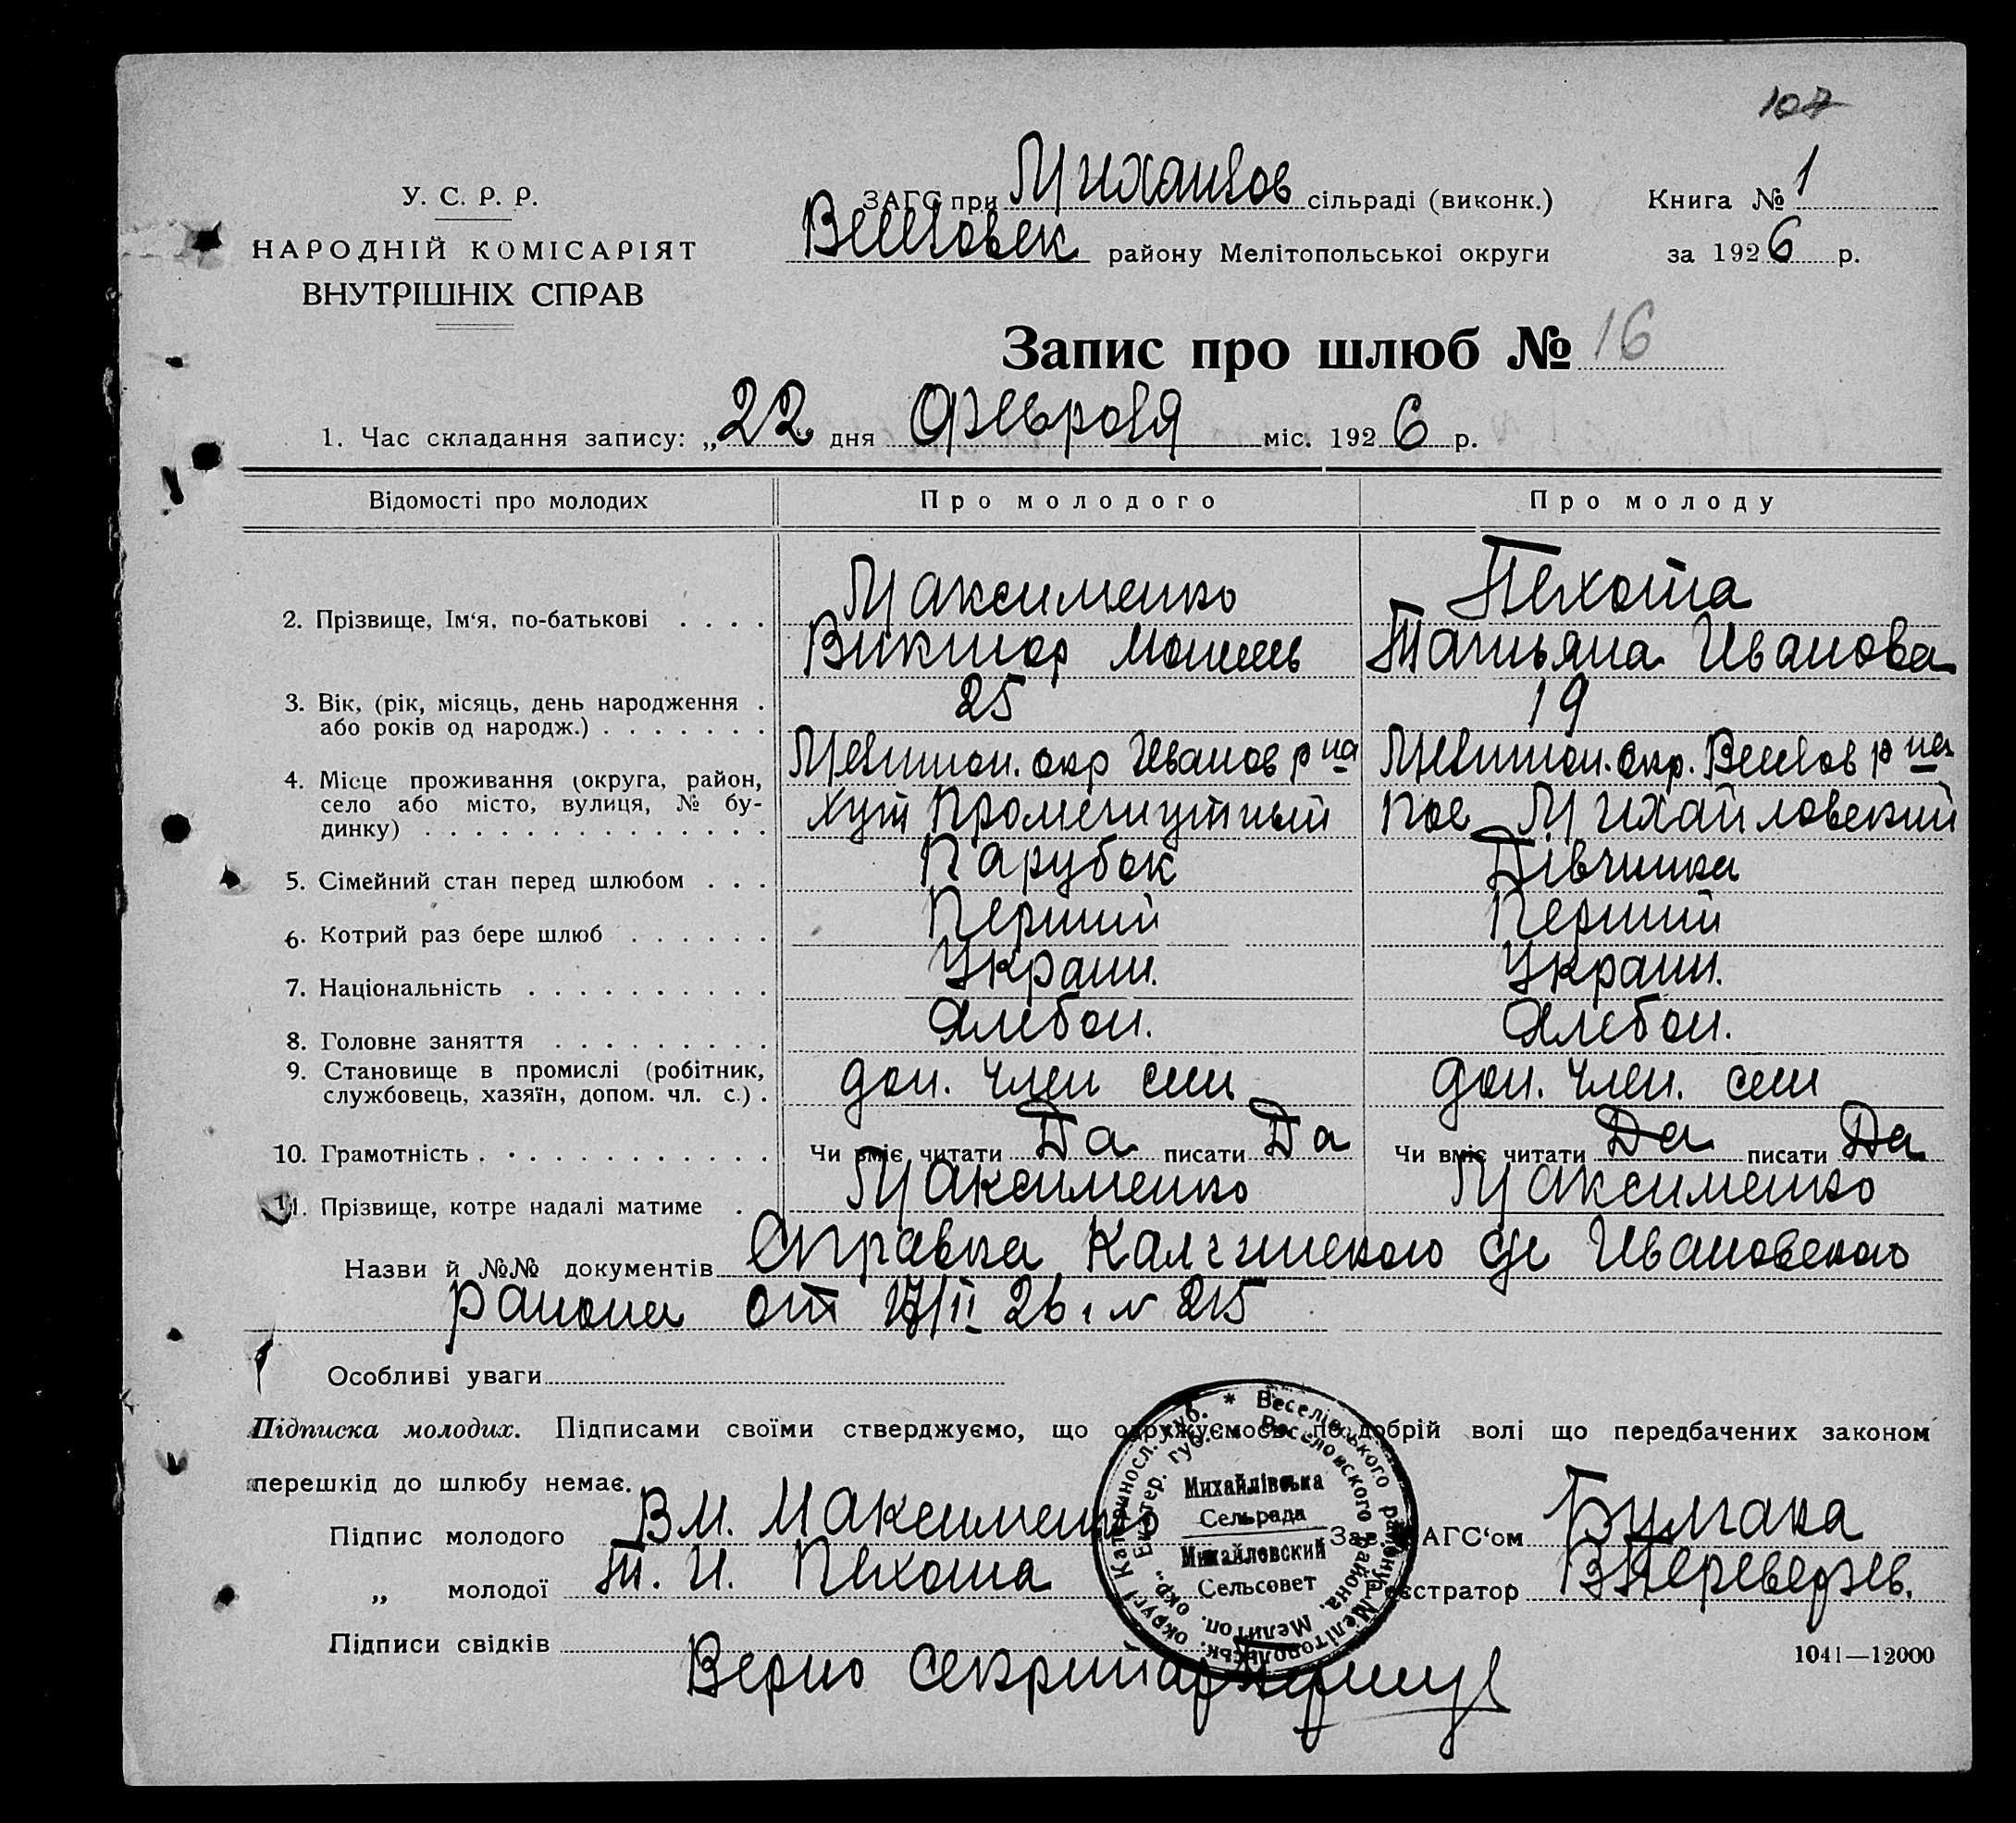 107
У. С. Р. Р.
НАРОДНІЙ КОМІСАРІЯТ
ВНУТРІШНІХ СПРАВ
ЗАГС при Михайлов сільраді (виконк.)
Веселовск району Мелітопольської округи
Книга № 1
за 1926 р.
Запис про шлюб № 16
1. Час складання запису: „22“ дня Февраля міс. 1926 р.
Відомості про молодих Про молодого Про молоду
2. Прізвище, Ім'я, по-батькові . . . . Максименко Пехота
Виктор Моисеев Татьяна Иванова
3. Вік, (рік, місяць, день народження . 25 19
або років од народж.) . . . . . . .
4. Місце проживання (округа, район, Мелитоп. окр Иванов р на Мелитоп. окр. Веселов р на
село або місто, вулиця, № бу- хут Промежутный пос Михайловский
динку) . . . . . . . . . . . . . .
5. Сімейний стан перед шлюбом . . . Парубок Дівчинка
6. Котрий раз бере шлюб . . . . . . Перший Перший
7. Національність . . . . . . . . . . Украин. Украин.
8. Головне заняття . . . . . . . . . Хлебоп. Хлебоп.
9. Становище в промислі (робітник, доп. член сем доп. член. сем
службовець, хазяїн, допом. чл. с.) .
10. Грамотність . . . . . . . . . . . . Чи вміє читати Да писати Да Чи вміє читати Да писати Да
11. Прізвище, котре надалі матиме . Максименко Максименко
Назви й №№ документів Справка Калгинского с/с Ивановского
района от 17/II 26 г № 215
Особливі уваги
Підписка молодих. Підписами своїми стверджуємо, що одружуємось по добрій волі що передбачених законом
перешкід до шлюбу немає.
Підпис молодого В М. Максименко
„ молодої Т. И. Пехота
Підписи свідків
Зав. ЗАГС'ом Булгака
Реєстратор В Переверзев.
Катериносл. губ. * Веселівського району Мелітопольськ. округи
Екатер. губ. Веселовского района, Мелитоп. окр.,
Михайлівська
Сельрада
Михайловский
Сельсовет
Верно Секритар
1041—12000